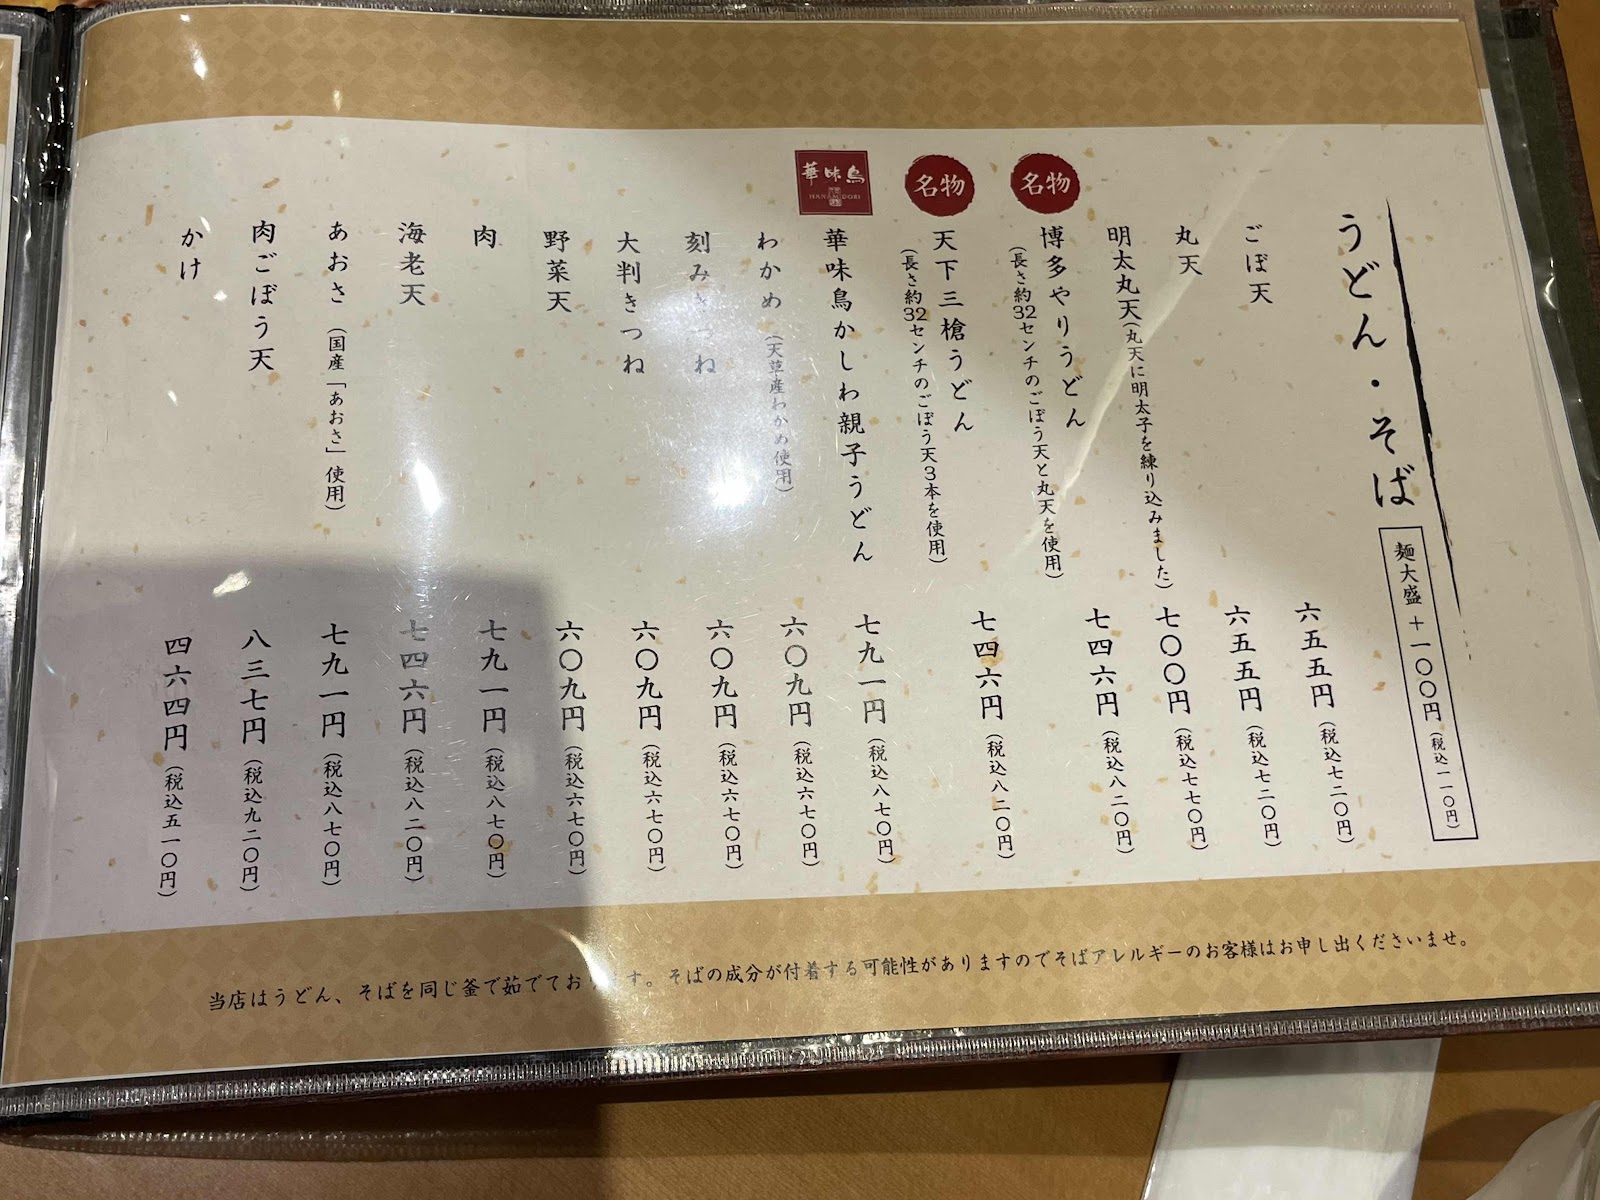 うどん・そば
麺大盛 + 一〇〇円(税込一一〇円)
ごぼ天 六五五円(税込七二〇円)
丸天 六五五円(税込七二〇円)
明太丸天(丸天に明太子を練り込みました) 七〇〇円(税込七七〇円)
名物
博多やりうどん 七四六円(税込八二〇円)
(長さ約32センチのごぼう天と丸天を使用)
名物
天下三槍うどん 七四六円(税込八二〇円)
(長さ約32センチのごぼう天3本を使用)
華味鳥
HANAMIDORI
華味鳥かしわ親子うどん 七九一円(税込八七〇円)
わかめ(天草産わかめ使用) 六〇九円(税込六七〇円)
刻みきつね 六〇九円(税込六七〇円)
大判きつね 六〇九円(税込六七〇円)
野菜天 六〇九円(税込六七〇円)
肉 七九一円(税込八七〇円)
海老天 七四六円(税込八二〇円)
あおさ(国産「あおさ」使用) 七九一円(税込八七〇円)
肉ごぼう天 八三七円(税込九二〇円)
かけ 四六四円(税込五一〇円)
当店はうどん、そばを同じ釜で茹でております。そばの成分が付着する可能性がありますのでそばアレルギーのお客様はお申し出くださいませ。